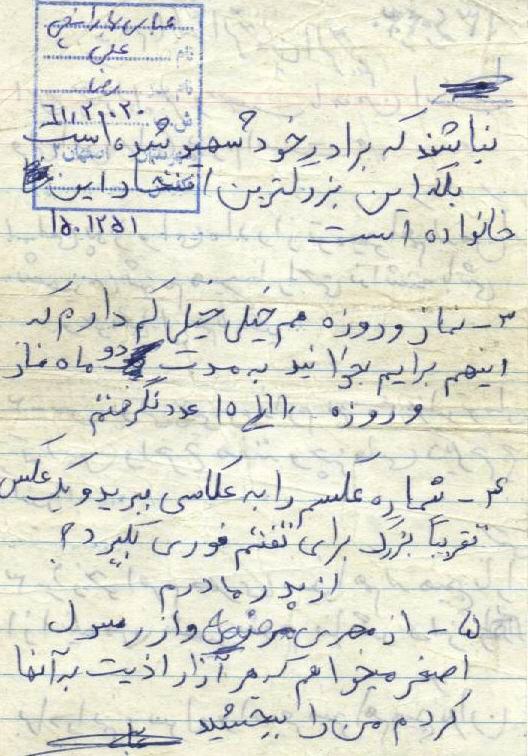 نام علی
نام پدر رضا
۶۱۱۲۱۰۲۰
نباشند که برادر خود شهید شده است
بلکه این بزرگترین افتخار این
خانواده است
۱۵۰۱۲۵۱
۳- نماز و روزه هم خیلی خیلی کم دارم که
اینهم برایم بخوانید به مدت دو ماه نماز
و روزه ۱۰ الی ۱۵ عدد نگرفتم
۴- شماره عکسم را به عکاسی ببرید و یک عکس
تقریباً بزرگ برای فوری بگیرد
از پدر مادرم
۵- از مهری و از رسول
اصغر میخواهم که هر آزار اذیت به آنها
کردم من را ببخشید